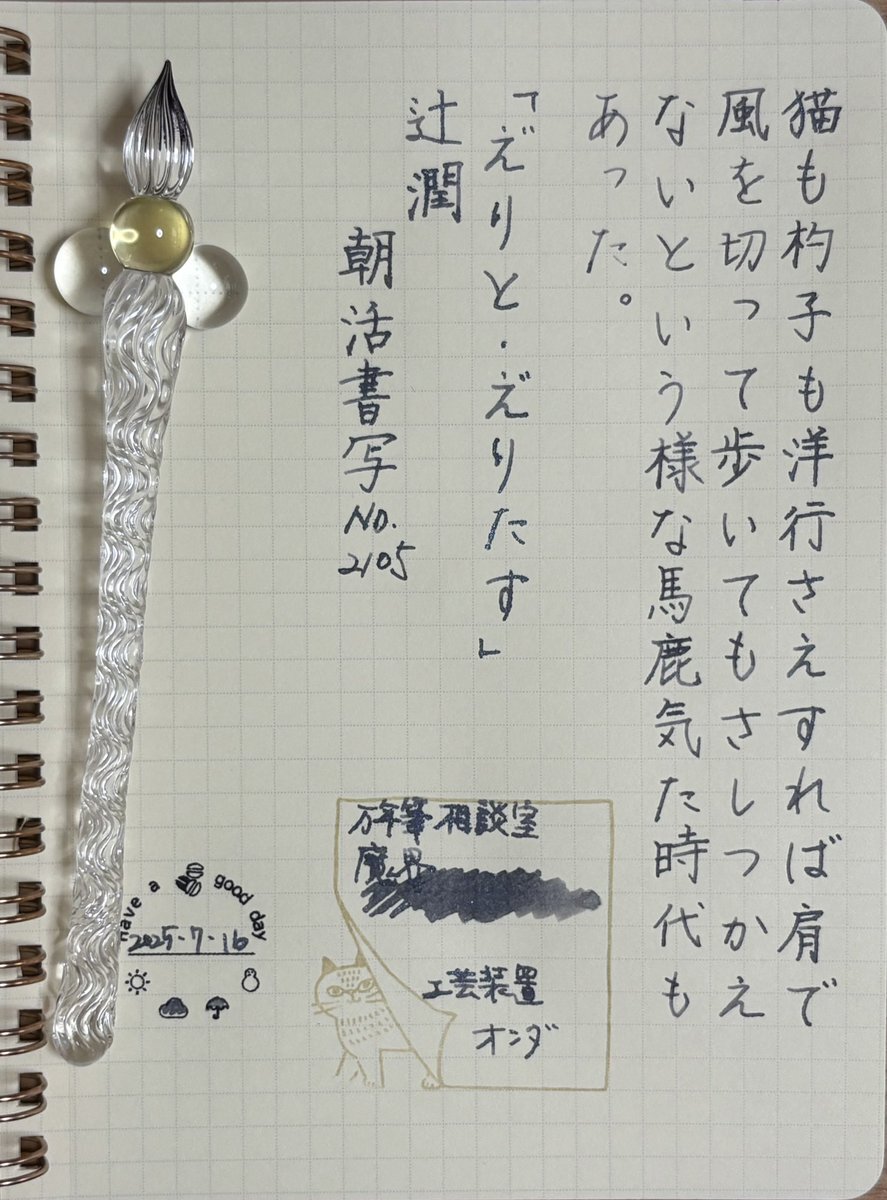 猫も杓子も洋行さえすれば肩で
風を切って歩いてもさしつかえ
ないという様な馬鹿気た時代も
あった。
「ゑりと・ゑりたす」
辻潤
朝活書写
No.
2105
万年筆相談室
魔界
工芸装置
オンダ
have a good day
2025-7-16